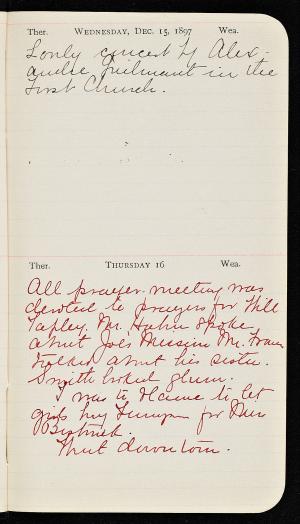 Ther. WEDNESDAY, DEC. 15, 1897 Wea.
Lovely concert by Alex-
andre Guilmant in the
First Church.
Ther. THURSDAY 16 Wea.
All prayer-meeting was
devoted to prayers for Will
Tapley. Mr. Hahn spoke
about Joe's Mission Mr.
talked about his sister.
Smith looked glum.
I was to to let
girls buy for
Went downtown.